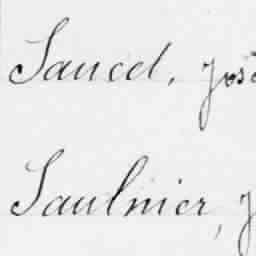 Sancel, José
Saulnier, J